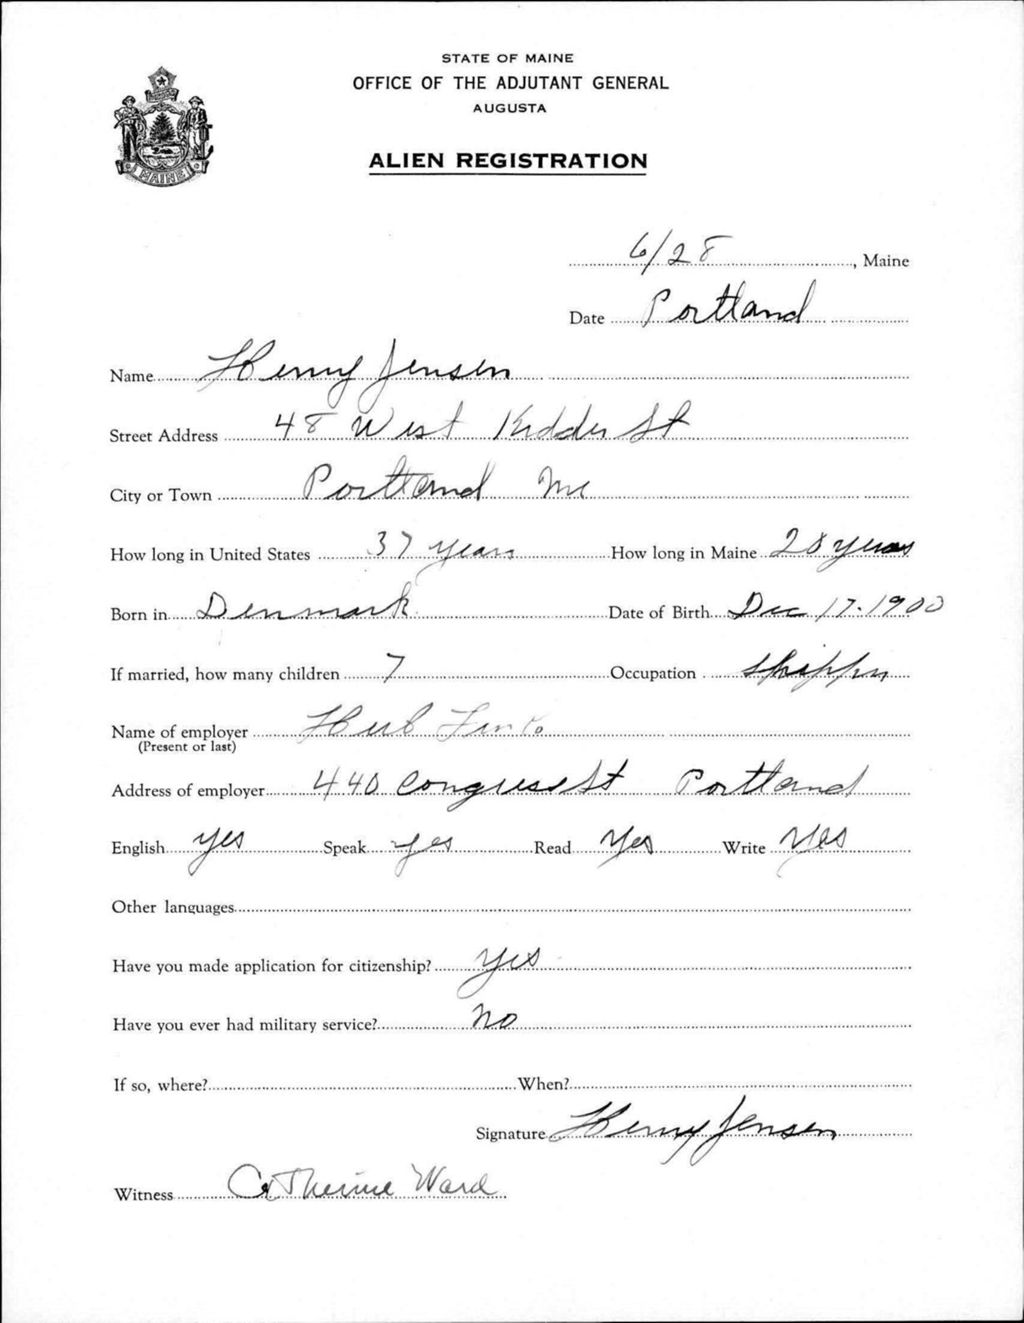 STATE OF MAINE
OFFICE OF THE ADJUTANT GENERAL
AUGUSTA
MAINE
ALIEN REGISTRATION
6/28, Maine
Date Portland
Name Henry Jensen
Street Address 48 West Kidder St
City or Town Portland Me
How long in United States 37 years How long in Maine 28 years
Born in Denmark Date of Birth Dec 17. 1900
If married, how many children 7 Occupation shipper
Name of employer Hub Co
(Present or last)
Address of employer 440 Congress St Portland
English yes Speak yes Read Yes Write Yes
Other languages
Have you made application for citizenship? Yes
Have you ever had military service? No
If so, where? When?
Signature Henry Jensen
Witness Catherine Ward